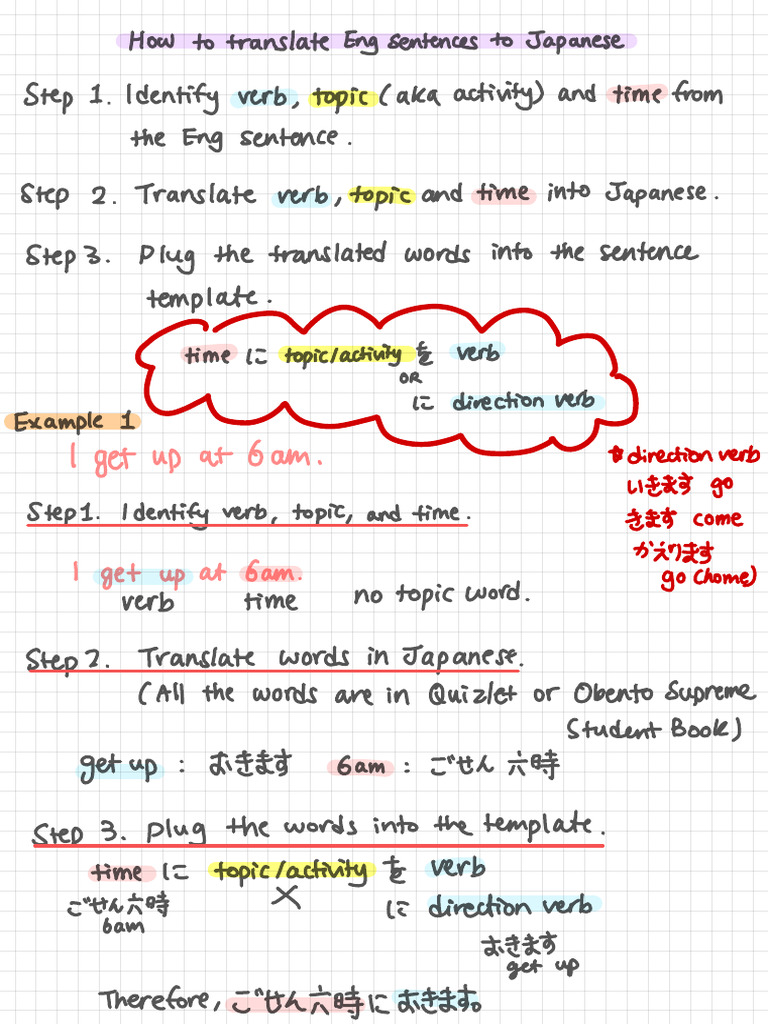 How to translate Eng sentences to Japanese
Step 1. Identify verb, topic (aka activity) and time from
the Eng sentence.
Step 2. Translate verb, topic and time into Japanese.
Step 3. Plug the translated words into the sentence
template.
time に topic/activity を verb
OR
に direction verb
Example 1
I get up at 6am.
*direction verb
いきます go
きます come
かえります
go (home)
Step 1. Identify verb, topic, and time.
I get up at 6am.
verb time no topic word.
Step 2. Translate words in Japanese.
(All the words are in Quizlet or Obento Supreme
Student Book)
get up : おきます 6am : ごぜん 六時
Step 3. plug the words into the template.
time に topic/activity を verb
ごぜん六時 × に direction verb
6am
おきます
get up
Therefore, ごぜん六時に おきます。